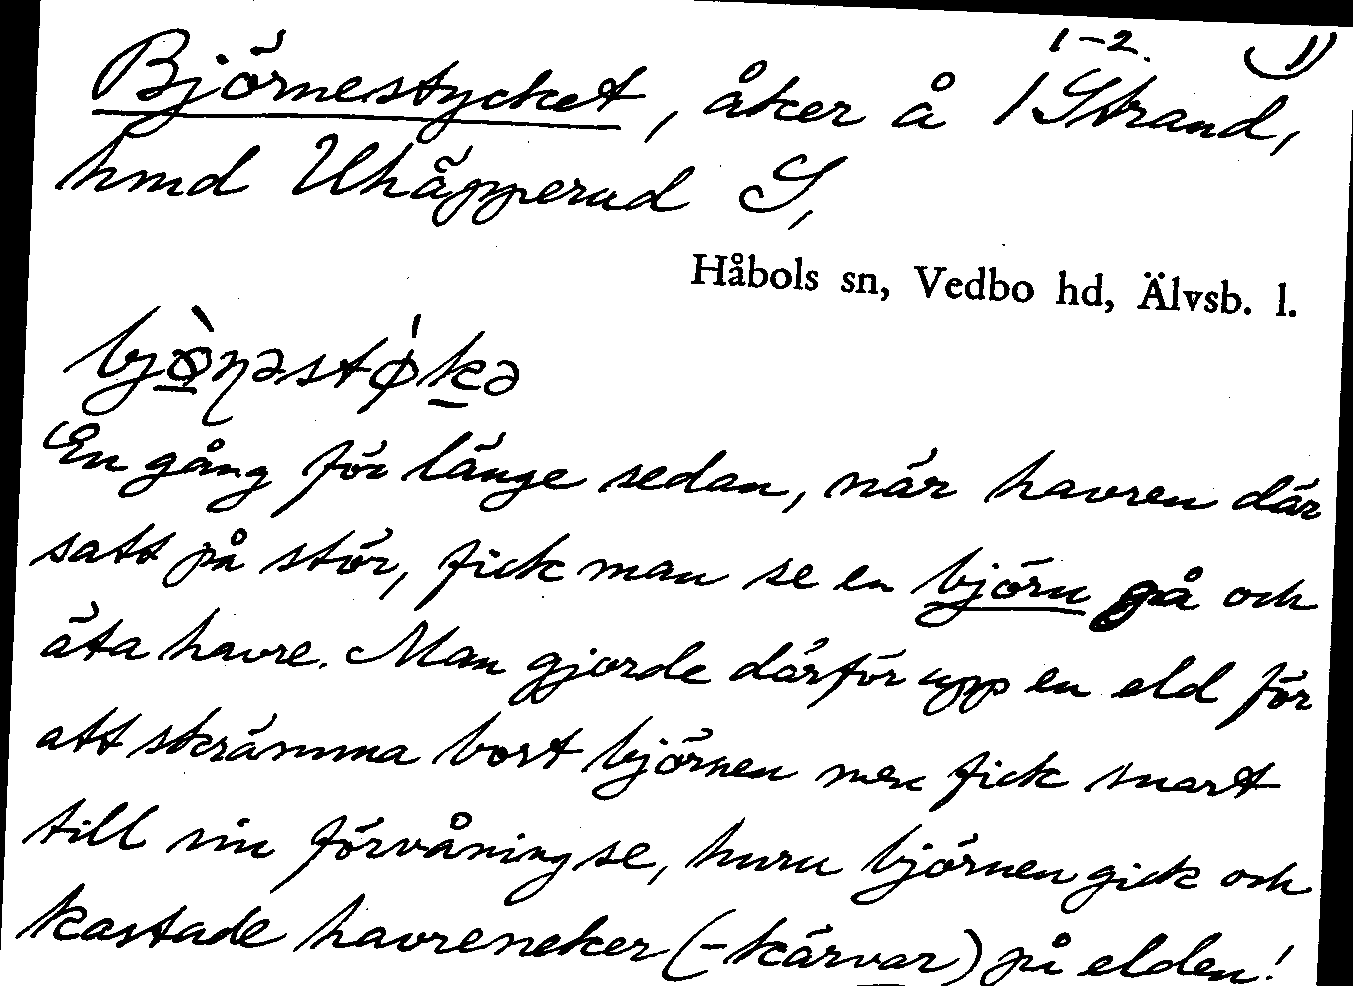 1-2. 1)
Björnestycket, åker å 1 Strand,
hmd Uhäpperud S,
Håbols sn, Vedbo hd, Älvsb. l.
bjø̀ɳəstǿkə
En gång för länge sedan, när havren där
satt på stör, fick man se en björn gå och
äta havre. Man gjorde därför upp en eld för
att skrämma bort björnen men fick snart
till sin förvåning se, huru björnen gick och
kastade havreneker (-kärvar) på elden!